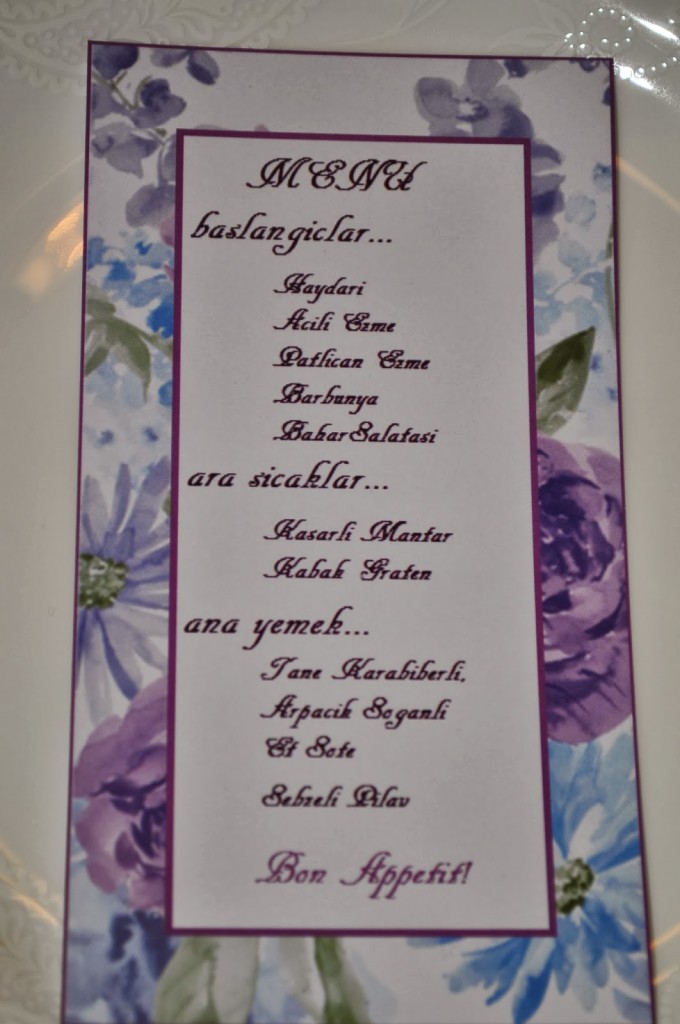 MENU
baslangiclar...
Haydari
Acili Ezme
Patlican Ezme
Barbunya
BaharSalatasi
ara sicaklar...
Kasarli Mantar
Kabak Graten
ana yemek...
Tane Karabiberli,
Arpacik Soganli
Et Sote
Sebzeli Pilav
Bon Appetit!